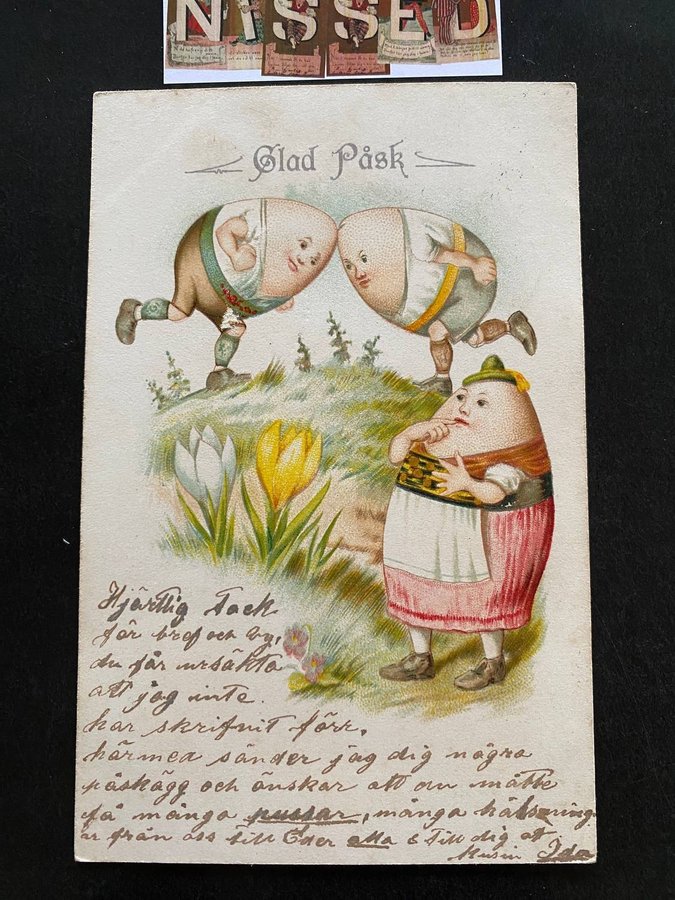 NISSED
Glad Påsk
Hjärtlig tack
för bref och vy,
du får ursäkta
att jag inte
har skrifvit förr,
härmed sänder jag dig några
påskägg och önskar att du måtte
få många pussar, många hälsning
ar från oss till Eder alla & till dig af
Kusin Ida